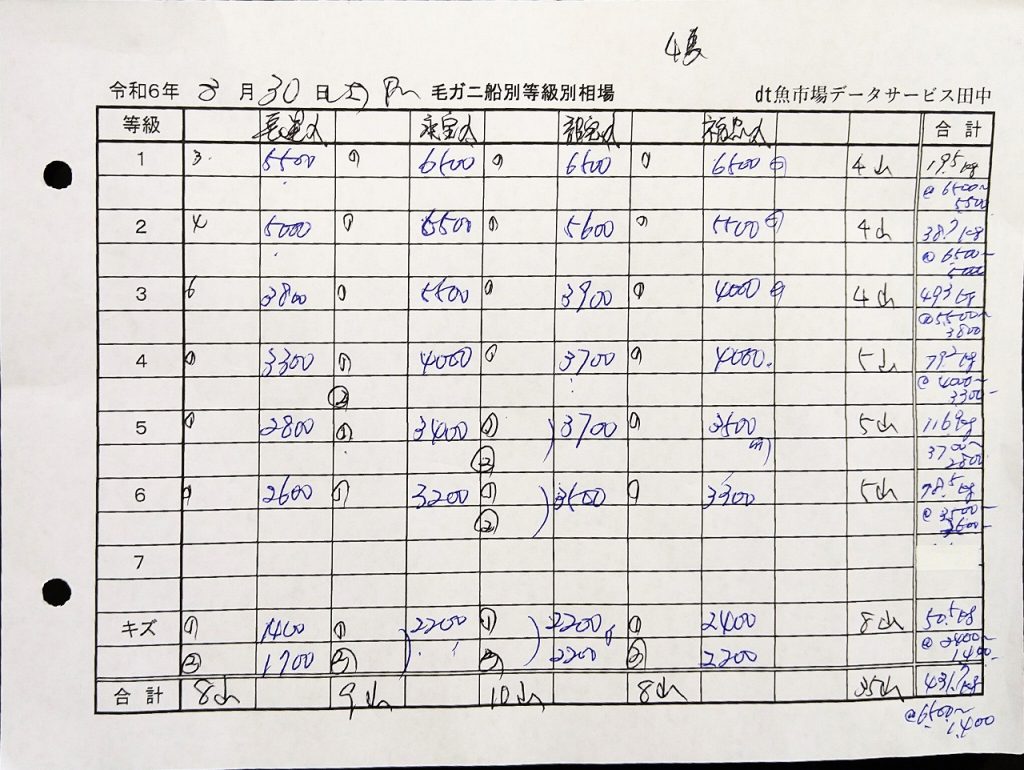 4隻
令和6年 3月30日(土) 毛ガニ船別等級別相場 dt魚市場データサービス田中
等級 合計
1 3. 5500 ① 6500 ① 6500 ① 6500 4山 19.5kg
@6500~
5500
2 4 5000 ① 5500 ① 5600 ① 5500 4山 38.7kg
@6500~
5000
3 6 3800 ① 5500 ① 3900 ① 4000 4山 49.3kg
@5500~
3800
4 ① 3300 ① 4000 ① 3700 ① 4000. 5山
@4000~
②
3300-
5 ① 2800 ① 3400 ① 3700 ① 3500 5山 116kg
②
3700~
2800
6 ① 2600 ① 3200 ① 3500 ① 3300 5山 78.5kg
②
@3500~
2600-
7
キズ ① 1400 ① 2200 ① 2200 ① 2400 8山 50.5kg
② 1700 ② ② 2200 ② 2200
@2400~
1400-
合計 8山 9山 10山 8山 35山 431.7kg
@6500~
1400